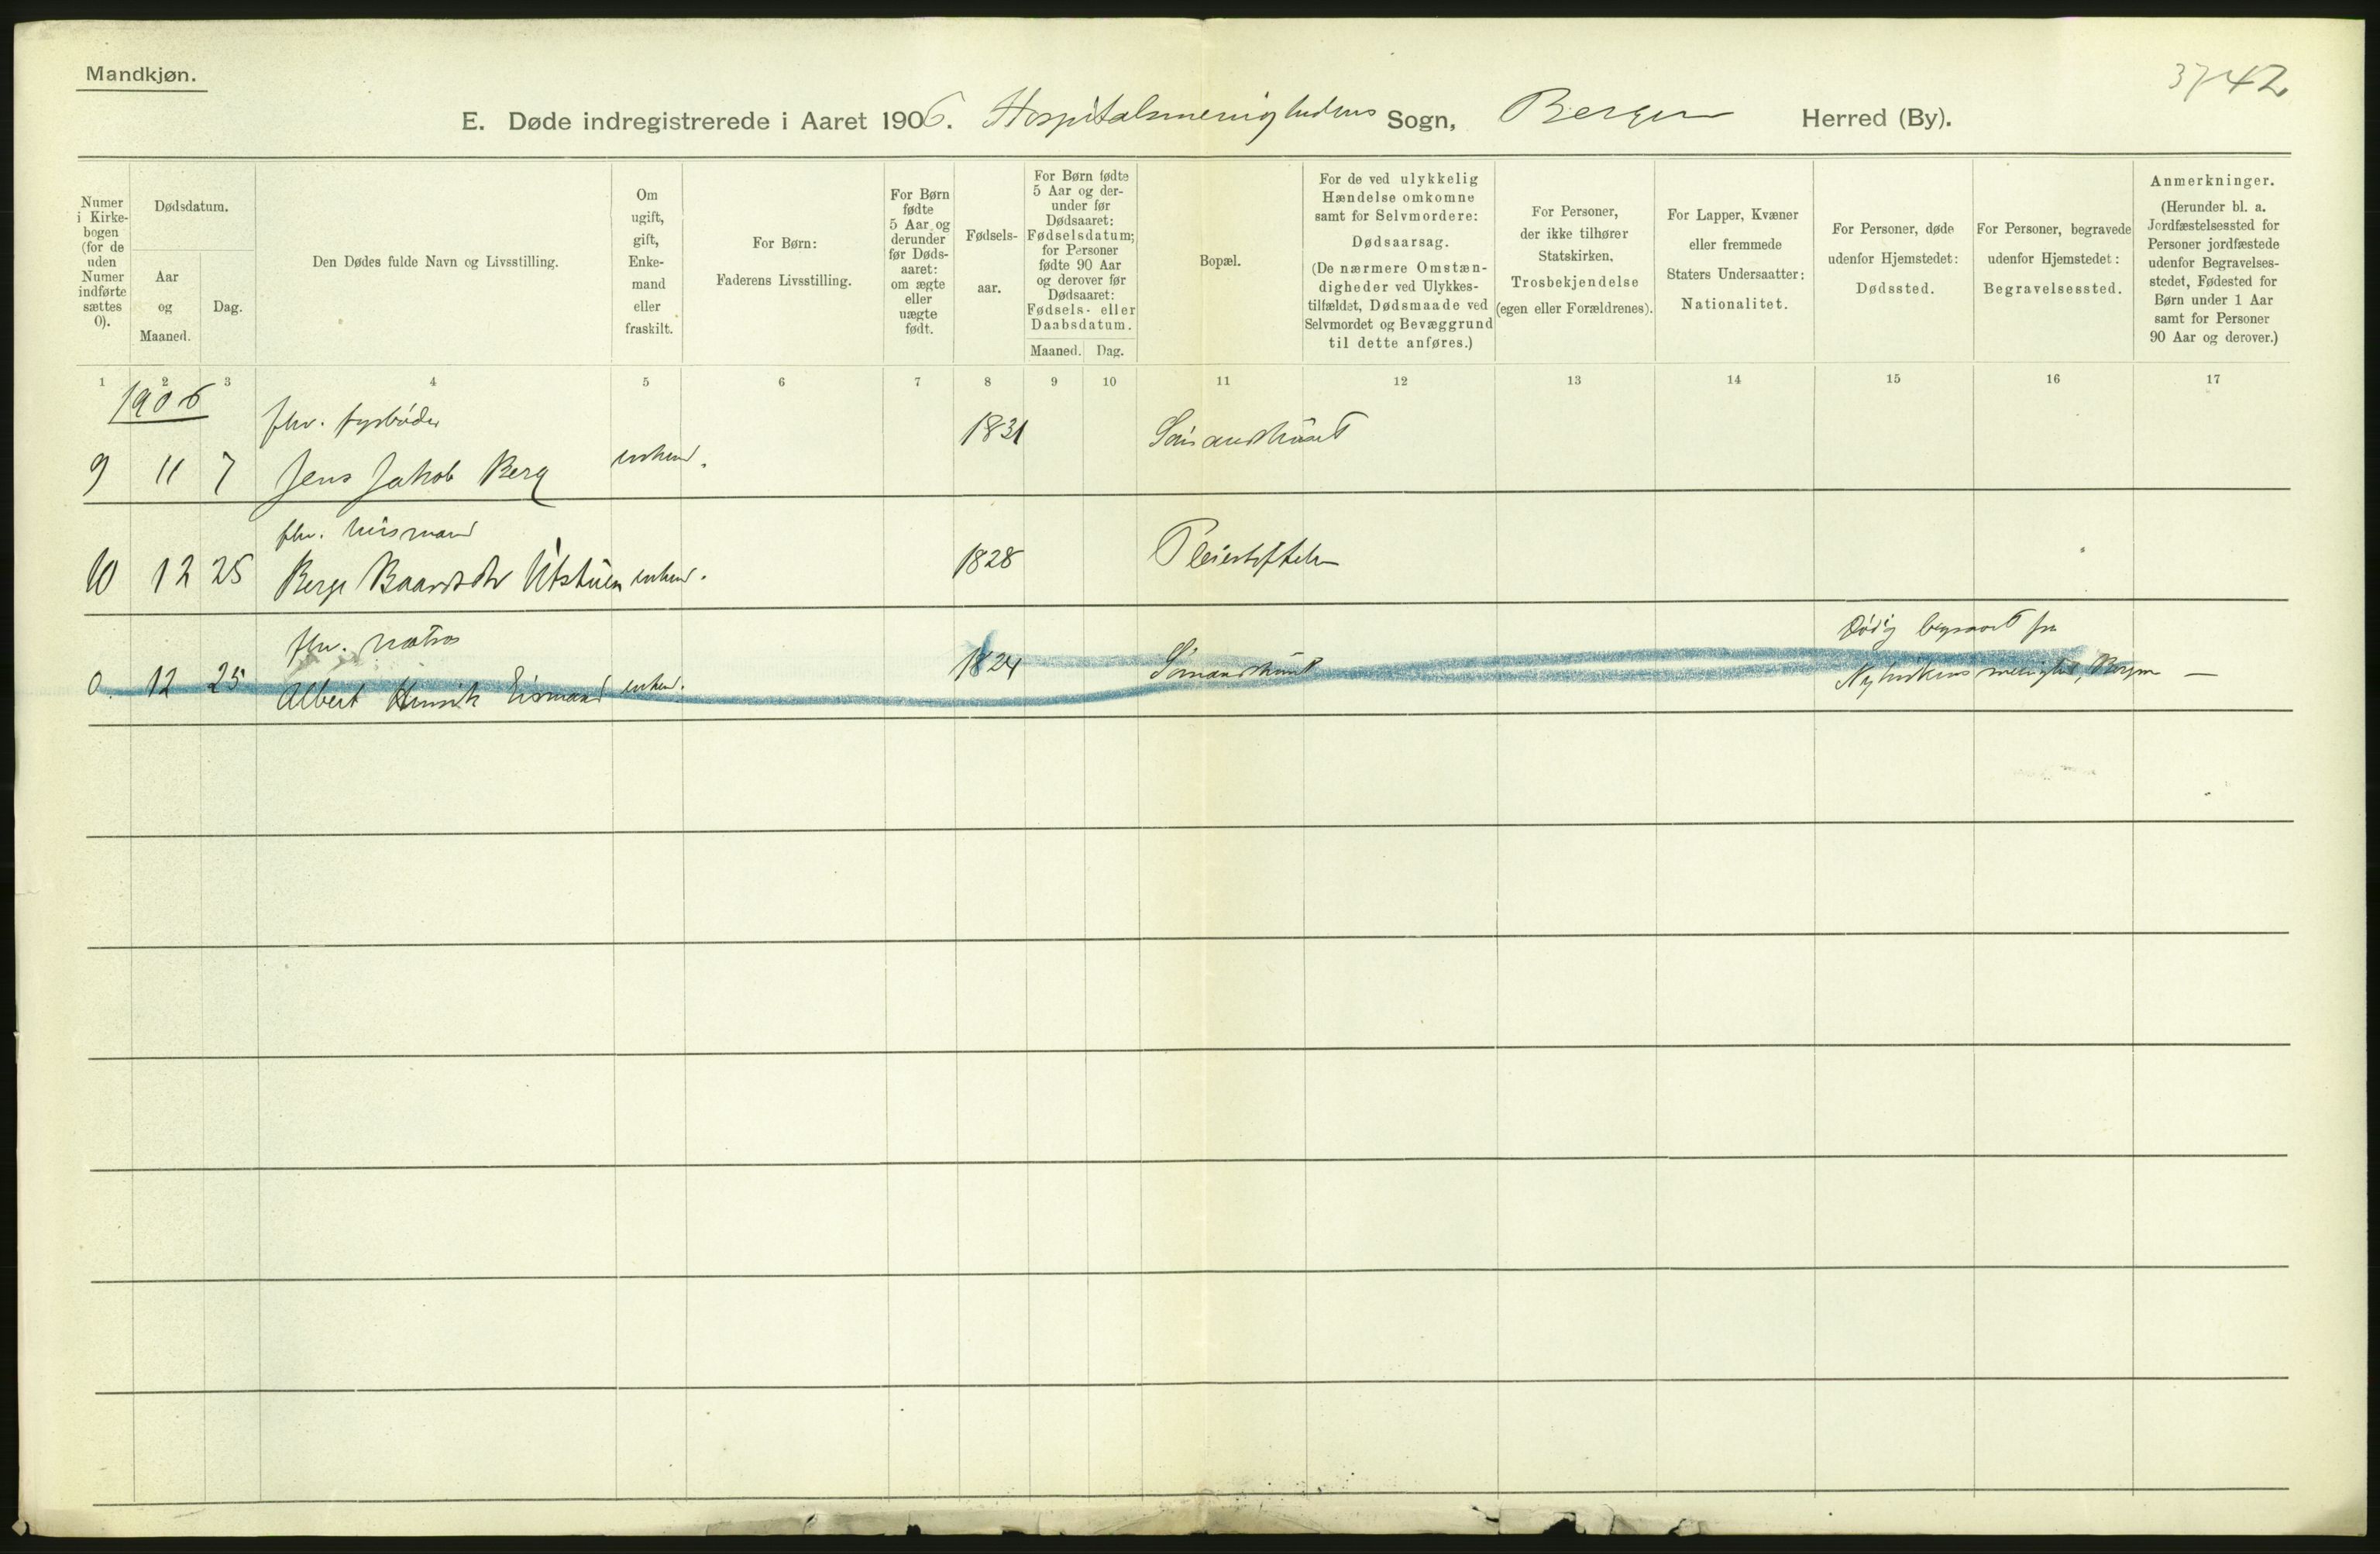 Mandkjøn.
3742
E. Døde indregistrerede i Aaret 1906. Hospitalsmenighedens Sogn, Bergen Herred (By).
Numer
i Kirke-
bogen
(for de
uden
Numer
indførte
sættes
0).
Dødsdatum.
Aar
og
Maaned.
Dag.
Den Dødes fulde Navn og Livsstilling.
Om
ugift,
gift,
Enke-
mand
eller
fraskilt.
For Børn:
Faderens Livsstilling.
For Børn
fødte
5 Aar og
derunder
før Døds-
aaret:
om ægte
eller
uægte
født.
Fødsels-
aar.
For Børn fødte
5 Aar og der-
under før
Dødsaaret:
Fødselsdatum;
for Personer
fødte 90 Aar
og derover før
Dødsaaret:
Fødsels- eller
Daabsdatum.
Maaned. Dag.
Bopæl.
For de ved ulykkelig
Hændelse omkomne
samt for Selvmordere:
Dødsaarsag.
(De nærmere Omstæn-
digheder ved Ulykkes-
tilfældet, Dødsmaade ved
Selvmordet og Bevæggrund
til dette anføres.)
For Personer,
der ikke tilhører
Statskirken,
Trosbekjendelse
(egen eller Forældrenes).
For Lapper, Kvæner
eller fremmede
Staters Undersaatter:
Nationalitet.
For Personer, døde
udenfor Hjemstedet:
Dødssted.
For Personer, begravede
udenfor Hjemstedet:
Begravelsessted.
Anmerkninger.
(Herunder bl. a.
Jordfæstelsessted for
Personer jordfæstede
udenfor Begravelses-
stedet, Fødested for
Børn under 1 Aar
samt for Personer
90 Aar og derover.)
1 2 3 4 5 6 7 8 9 10 11 12 13 14 15 16 17
1906
fhv. fyrbøder
9 11 7 Jens Jakob Berg enkem. 1831 Sømandshuset
fhv. husmand
10 12 25 Berge Baards Utstuen enkem. 1828 Pleiestiftelsen
fhv. matros
0. 12 25 Albert Henrik enkem. 1824 Sømandshuset
Død og begravet fra
Nykirkens menighed, Bergen —